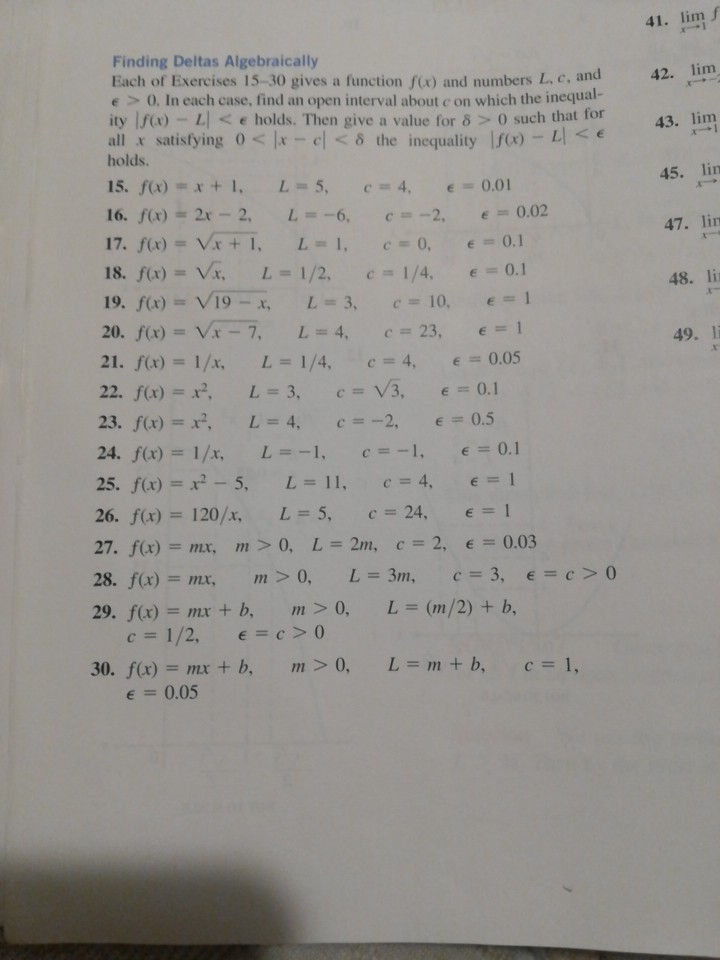 Finding Deltas Algebraically
Each of Exercises 15–30 gives a function f(x) and numbers L, c, and
ϵ > 0. In each case, find an open interval about c on which the inequal-
ity |f(x) − L| < ϵ holds. Then give a value for δ > 0 such that for
all x satisfying 0 < |x − c| < δ the inequality |f(x) − L| < ϵ
holds.
15. f(x) = x + 1, L = 5, c = 4, ϵ = 0.01
16. f(x) = 2x − 2, L = −6, c = −2, ϵ = 0.02
17. f(x) = √(x + 1), L = 1, c = 0, ϵ = 0.1
18. f(x) = √x, L = 1/2, c = 1/4, ϵ = 0.1
19. f(x) = √(19 − x), L = 3, c = 10, ϵ = 1
20. f(x) = √(x − 7), L = 4, c = 23, ϵ = 1
21. f(x) = 1/x, L = 1/4, c = 4, ϵ = 0.05
22. f(x) = x², L = 3, c = √3, ϵ = 0.1
23. f(x) = x², L = 4, c = −2, ϵ = 0.5
24. f(x) = 1/x, L = −1, c = −1, ϵ = 0.1
25. f(x) = x² − 5, L = 11, c = 4, ϵ = 1
26. f(x) = 120/x, L = 5, c = 24, ϵ = 1
27. f(x) = mx, m > 0, L = 2m, c = 2, ϵ = 0.03
28. f(x) = mx, m > 0, L = 3m, c = 3, ϵ = c > 0
29. f(x) = mx + b, m > 0, L = (m/2) + b,
c = 1/2, ϵ = c > 0
30. f(x) = mx + b, m > 0, L = m + b, c = 1,
ϵ = 0.05
41. lim f
x→1
42. lim
43. lim
x→1
45.
47.
48.
49.